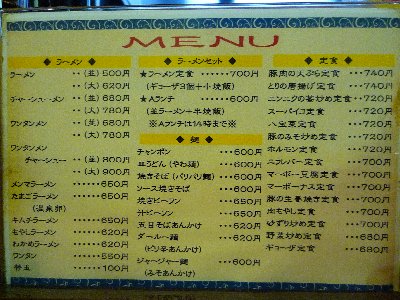 MENU
◆ ラーメン ◆
ラーメン ‥(並) 500円
‥(大) 620円
チャーシューメン ‥(並) 680円
‥(大) 780円
ワンタンメン ‥(並) 680円
‥(大) 780円
ワンタンメン
チャーシュー ‥(並) 800円
‥(大) 900円
メンマラーメン ‥‥‥650円
たまごラーメン ‥‥‥650円
(温泉卵)
キムチラーメン ‥‥‥620円
もやしラーメン ‥‥‥620円
わかめラーメン ‥‥‥620円
ワンタン ‥‥‥550円
替玉 ‥‥‥100円
◆ ラーメンセット ◆
★ラーメン定食 ‥‥‥700円
(ギョーザ3個+小焼飯)
★Aランチ ‥‥‥600円
(並ラーメン+半焼飯)
※Aランチは14時まで※
◆ 麺 ◆
チャンポン ‥‥‥600円
皿うどん(やわ麺) ‥‥‥600円
焼きそば(パリパリ麺) ‥‥‥600円
ソース焼きそば ‥‥‥600円
焼きビーフン ‥‥‥550円
汁ビーフン ‥‥‥550円
五目そばあんかけ ‥‥‥620円
ダールー麺 ‥‥‥620円
(ピリ辛あんかけ)
ジャージャー麺 ‥‥‥600円
(みそあんかけ)
◆ 定食 ◆
豚肉の天ぷら定食 ‥‥740円
とりの唐揚げ定食 ‥‥740円
ニンニクの芽炒め定食 ‥‥720円
スーパイコ定食 ‥‥720円
八宝菜定食 ‥‥720円
豚のみそ炒め定食 ‥‥720円
ホルモン定食 ‥‥720円
ニラレバー定食 ‥‥700円
マーボー豆腐定食 ‥‥700円
マーボーナス定食 ‥‥700円
豚の生姜焼き定食 ‥‥700円
肉もやし定食 ‥‥700円
ゆずり炒め定食 ‥‥680円
野菜炒め定食 ‥‥680円
ギョーザ定食 ‥‥680円